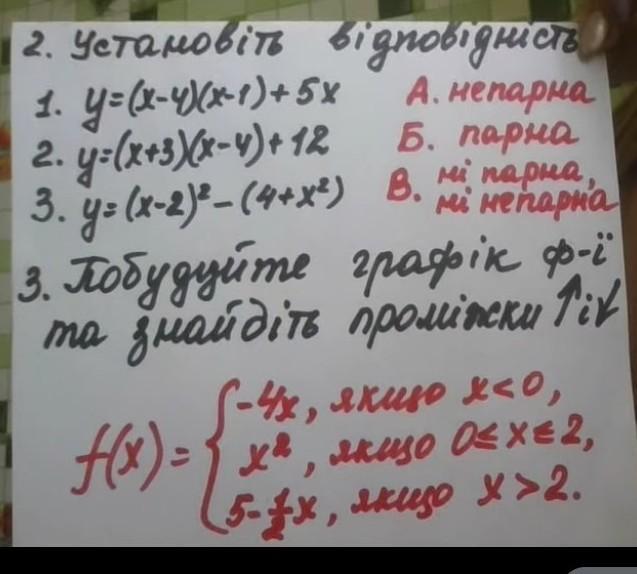 2. Установіть відповідність
1. y=(x-4)(x-1)+5x А. непарна
2. y=(x+3)(x-4)+12 Б. парна
3. y=(x-2)²-(4+x²) В. ні парна, ні непарна
3. Побудуйте графік ф-ї
та знайдіть проміжки ↑і↓
f(x)= { -4x, якщо x<0,
x², якщо 0≤x≤2,
5-1/2x, якщо x>2.